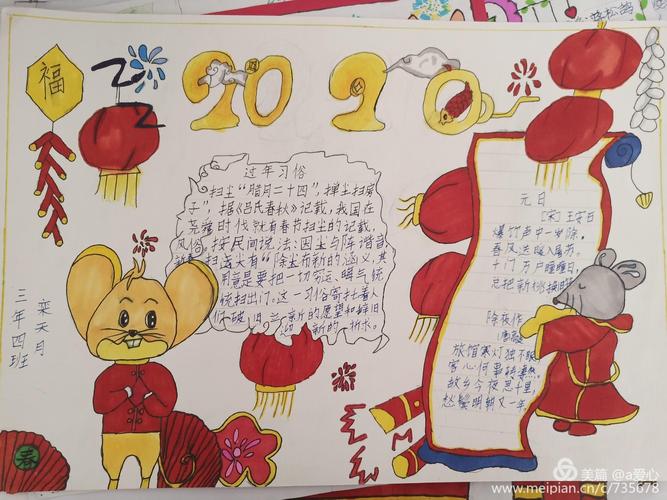 福
2020
过年习俗
扫尘"腊月二十四", 掸尘扫房
子", 据《吕氏春秋》记载, 我国在
尧舜时代就有春节扫尘的记载,
风俗, 按民间说法: 因尘与陈谐音
扫尘大有"除尘布新的涵义, 其
用意是要把一切穷运、晦气统
统扫出门。这一习俗寄托着人
新的愿望和辞旧
迎新的祈求。
元日
[宋]王安石
爆竹声中一岁除,
春风送暖入屠苏。
千门万户曈曈日,
总把新桃换旧
除夜作
唐高
旅馆寒灯独不眠,
客心何事转凄然。
故乡今夜思千里,
愁鬓明朝又一年。
栾天月
三年四班
春
美篇 @a爱心
www.meipian.cn/c/735678